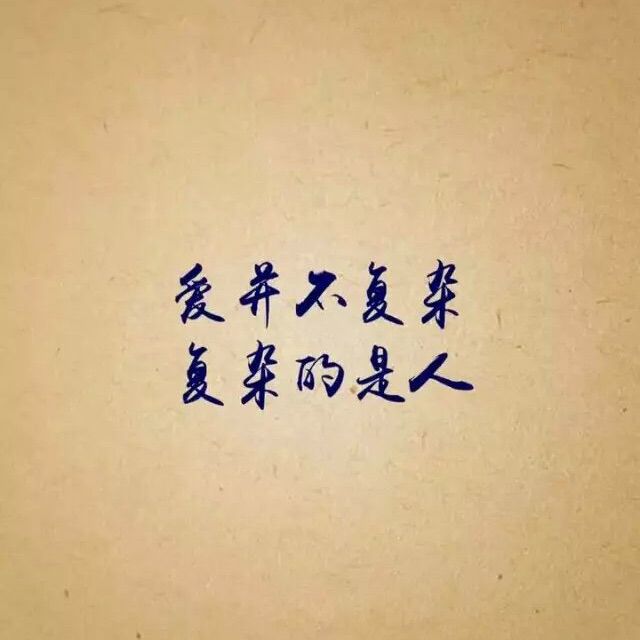 爱并不复杂
复杂的是人